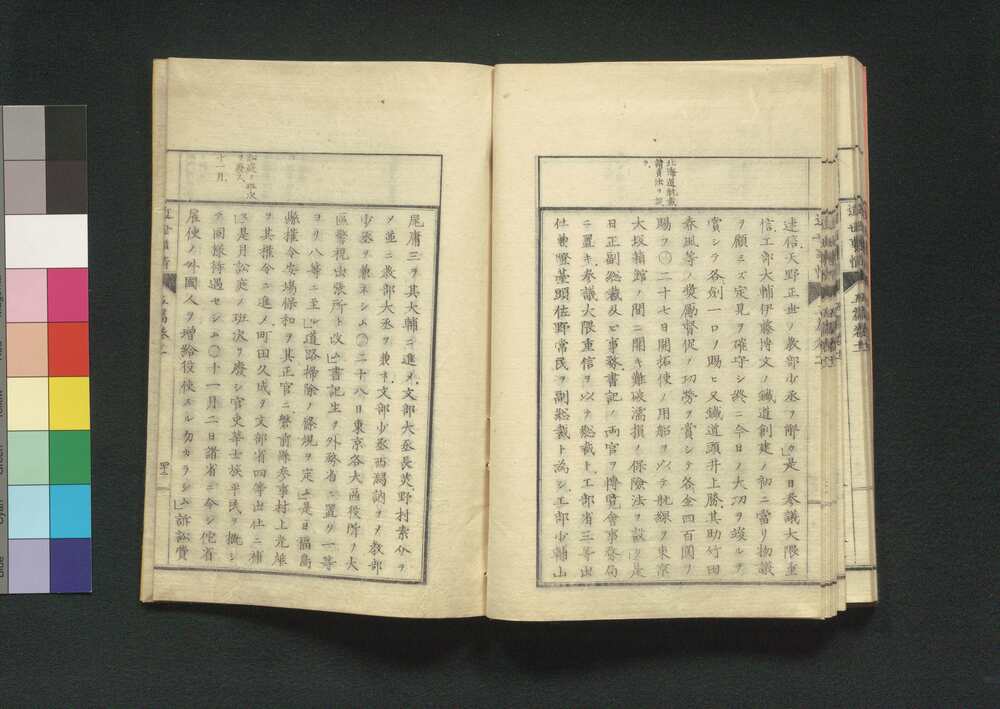 北海道航載
諸貨
速信天野正世ヲ教部少丞ヲ
是日参議大隈重
信工部大輔伊藤博文ノ鐵道創建ノ初ニ當リ物議
ヲ顧ミズ定見ヲ確守シ終ニ今日ノ大功ヲ竣ルヲ
賞シテ各劍一口ヲ賜ヒ又鐵道頭井上勝其助竹田
春風等ノ奬励督促ノ功勞ヲ賞シテ各金四百圓ヲ
賜フ○二十七日開拓使ノ用船ヲ以テ航線ヲ東京
大坂箱館ノ間ニ開キ難破濡損ノ保險法ヲ設ク是
日正副総裁及ヒ事務書記ノ両官ヲ博覽會事務局
ニ置キ参議大隈重信ヲ以ヲ総裁ト工部省三等出
仕兼燈臺頭佐野常民ヲ副総裁ト為シ工部少輔山
尾庸三ヲ其大輔ニ進メ文部大丞長英野村素介ヲ
メ並ニ教部大丞ヲ兼ネ文部少丞西潟訥ヲメ教部
少丞ヲ兼ネシム○二十八日東京各大區役所ヲ大
區警視出張所ト改メ書記生ヲ外務省ニ置ク一等
ヨリ八等ニ至ル道路掃除ノ條規ヲ定ム是日福島
縣權令安場保和ヲ其正官ニ繁前縣参事村上光雄
ヲ其權令ニ進メ町田久成ヲ文部省四等出仕ニ補
ス是月訟庭ノ班次ヲ廢シ官吏華士族平民ヲ概シ
テ同様待遇セシム○十一月二日諸省ニ令シ佗省
雇使ノ外國人ヲ増給役使スル勿カラシム訴訟費
訟庭ノ班次
ヲ廢ス
十一月